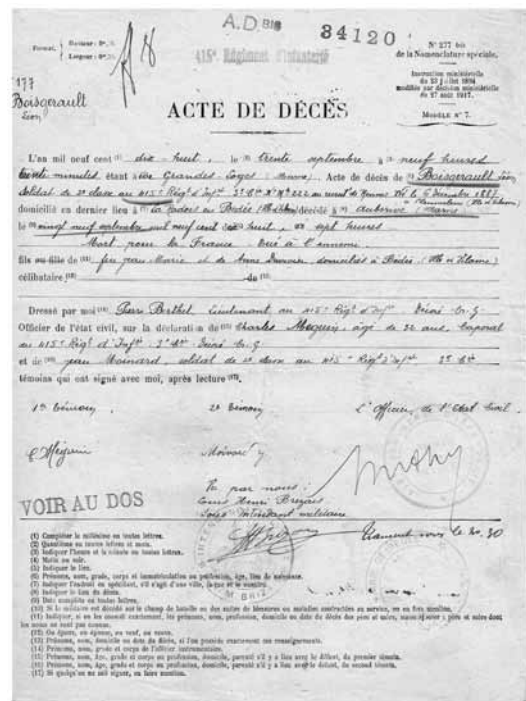 A.D. BIS
34120
Format. { Hauteur : 0m,
Largeur : 0m,
415e Régiment d'Infanterie
N° 277 bis
de la Nomenclature spéciale.
Instruction ministérielle
du 23 juillet 1894
modifiée par décision ministérielle
du 27 août 1917.
MODÈLE N° 7.
177
Boisgerault
Léon
ACTE DE DÉCÈS
L'an mil neuf cent (1) dix huit, le (2) trente septembre à (3) neuf heures
trente minutes, étant à (5) Grandes Loges (Marne). Acte de décès de (6) Boisgerault Léon
soldat de 2e classe au 415e Régt d'Inft 3e Cie Né le 6 Décembre 1887
domicilié en dernier lieu à (7) en Bédée décédé à (8) Auberive (Marne)
le (9) vingt neuf septembre mil neuf cent dix huit, sept heures
Mort pour la France. Tué à l'ennemi
fils ou fille de (11) feu Jean Marie et de Anne domiciliés à Bédée (Ille et Vilaine)
célibataire (12) de (13)
Dressé par moi (14) Pierre Berthet, Lieutenant au 415e Régt d'Inft Décoré Cr. G
Officier de l'état civil, sur la déclaration de (15) Charles âgé de 32 ans Caporal
au 415e Régt d'Inft 3e Cie Décoré Cr. G
et de (16) Jean Moinard, soldat de 2e classe au 415e Régt d'Inft 3e Cie
témoins qui ont signé avec moi, après lecture (17).
1er témoin,
2e témoin
L'Officier de l'Etat Civil
Vu par nous :
Henri
Sous Intendant militaire
VOIR AU DOS
(1) Compléter le millésime en toutes lettres.
(2) Quantième en toutes lettres et mois.
(3) Indiquer l'heure et la minute en toutes lettres.
(4) Matin ou soir.
(5) Indiquer le lieu.
(6) Prénoms, nom, grade, corps et immatriculation ou profession, âge, lieu de naissance.
(7) Indiquer l'endroit en spécifiant, s'il s'agit d'une ville, la rue et le numéro.
(8) Indiquer le lieu du décès.
(9) Date complète en toutes lettres.
(10) Si le militaire est décédé sur le champ de bataille ou des suites de blessures ou maladies contractées au service, en faire mention.
(11) Indiquer, si on les connaît exactement, les prénoms, noms, profession, domicile ou date du décès des père et mère, sinon ajouter : père et mère dont
les noms ne sont pas connus.
(12) Ou époux, ou épouse, ou veuf, ou veuve.
(13) Prénoms, nom, domicile ou date du décès, si l'on possède exactement ces renseignements.
(14) Prénoms, nom, grade et corps de l'officier instrumentaire.
(15) Prénoms, nom, âge, grade et corps ou profession, domicile, parenté s'il y a lieu avec le défunt, du premier témoin.
(16) Prénoms, nom, âge, grade et corps ou profession, domicile, parenté s'il y a lieu avec le défunt, du second témoin.
(17) Si quelqu'un ne sait signer, en faire mention.